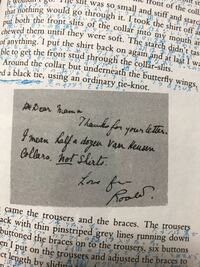 wouldn't go. The slit was so small and stiff and star
that nothing would go through it. I took the shirt off
put both the front slits of the collar into my
chewed them until they were soft. The stud didn't ta
anything. I put the shirt back on again and at last I w
ble to get the front stud through the collar-slits.
Around the collar but underneath the butterfly wings
d a black tie, using an ordinary tie-knot.
Dear Mama
Thanks for your letter.
I mean half a dozen Van Heusen
Collars. Not Shirts.
Love from
Roald
came the trousers and the braces. The trousers
ack with thin pinstriped grey lines running down
buttoned the braces on to the trousers, six buttons
n I put on the trousers and adjusted the braces to
ct length by sliding